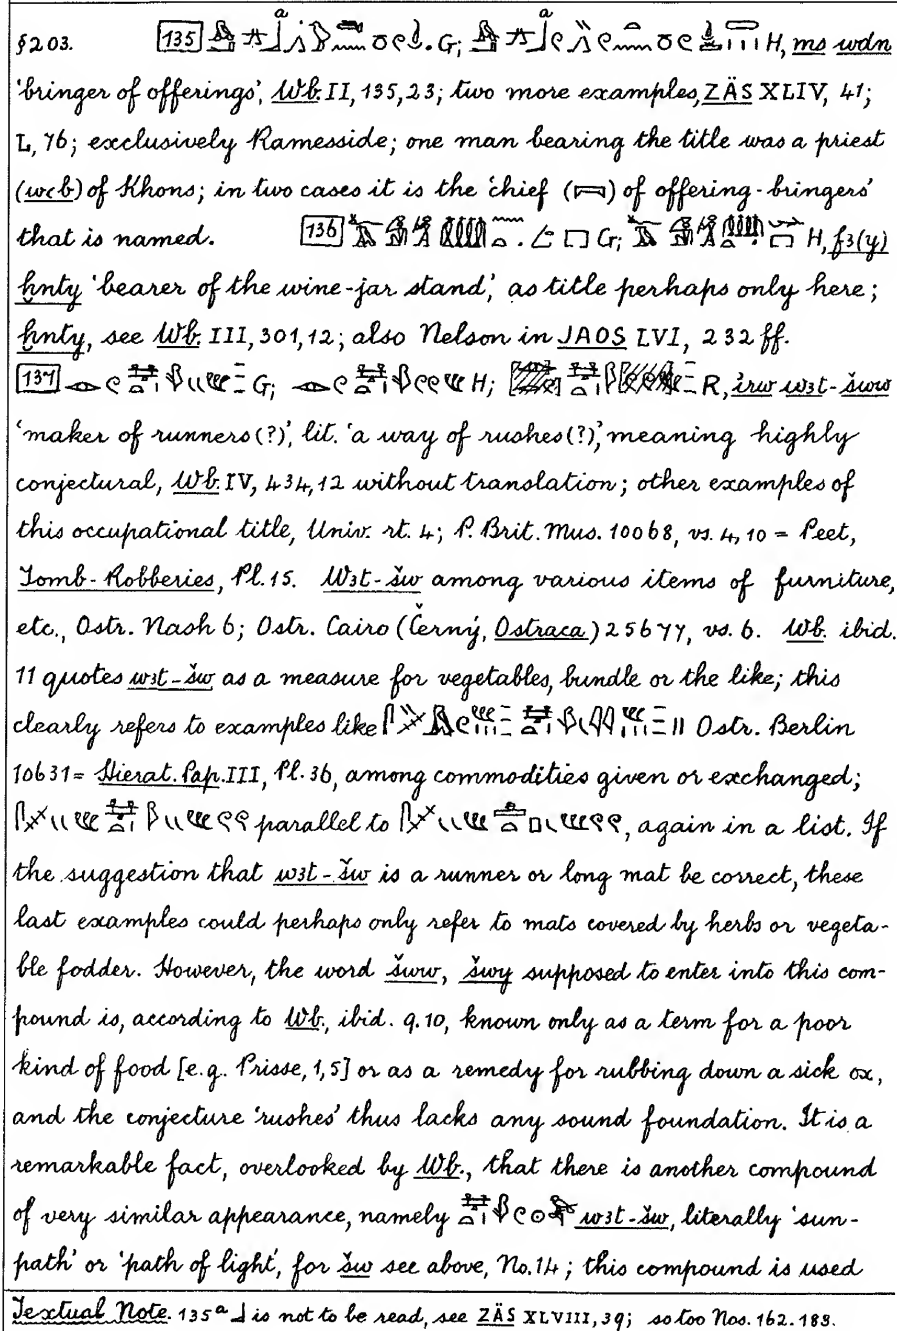 §203. [135] G; H, ms wdn
'bringer of offerings', Wb. II, 135,23; two more examples, ZÄS XLIV, 41;
L, 76; exclusively Ramesside; one man bearing the title was a priest
(wꜥb) of Khons; in two cases it is the 'chief (𓈔) of offering-bringers'
that is named. [136] G; H, fꜣ(y)
ẖnty 'bearer of the wine-jar stand', as title perhaps only here;
ẖnty, see Wb. III, 301,12; also Nelson in JAOS LVI, 232 ff.
[137] G; H; R, irw wꜣt-šww
'maker of runners(?)', lit. 'a way of rushes(?)', meaning highly
conjectural, Wb. IV, 434,12 without translation; other examples of
this occupational title, Univ. rt. 4; P. Brit. Mus. 10068, vs. 4, 10 = Peet,
Tomb-Robberies, Pl. 15. Wꜣt-šw among various items of furniture,
etc., Ostr. Nash 6; Ostr. Cairo (Černý, Ostraca) 25677, vs. 6. Wb. ibid.
11 quotes wꜣt-šw as a measure for vegetables, bundle or the like; this
clearly refers to examples like Ostr. Berlin
10631 = Hierat. Pap. III, Pl. 36, among commodities given or exchanged;
parallel to , again in a list. If
the suggestion that wꜣt-šw is a runner or long mat be correct, these
last examples could perhaps only refer to mats covered by herbs or vegeta-
ble fodder. However, the word šww, šwy supposed to enter into this com-
pound is, according to Wb., ibid. 9.10, known only as a term for a poor
kind of food [e.g. Prisse, 1,5] or as a remedy for rubbing down a sick ox,
and the conjecture 'rushes' thus lacks any sound foundation. It is a
remarkable fact, overlooked by Wb., that there is another compound
of very similar appearance, namely wꜣt-šw, literally 'sun-
path' or 'path of light', for šw see above, No. 14; this compound is used
Textual Note. 135ᵃ 𓃀 is not to be read, see ZÄS XLVIII, 39; so too Nos. 162. 183.